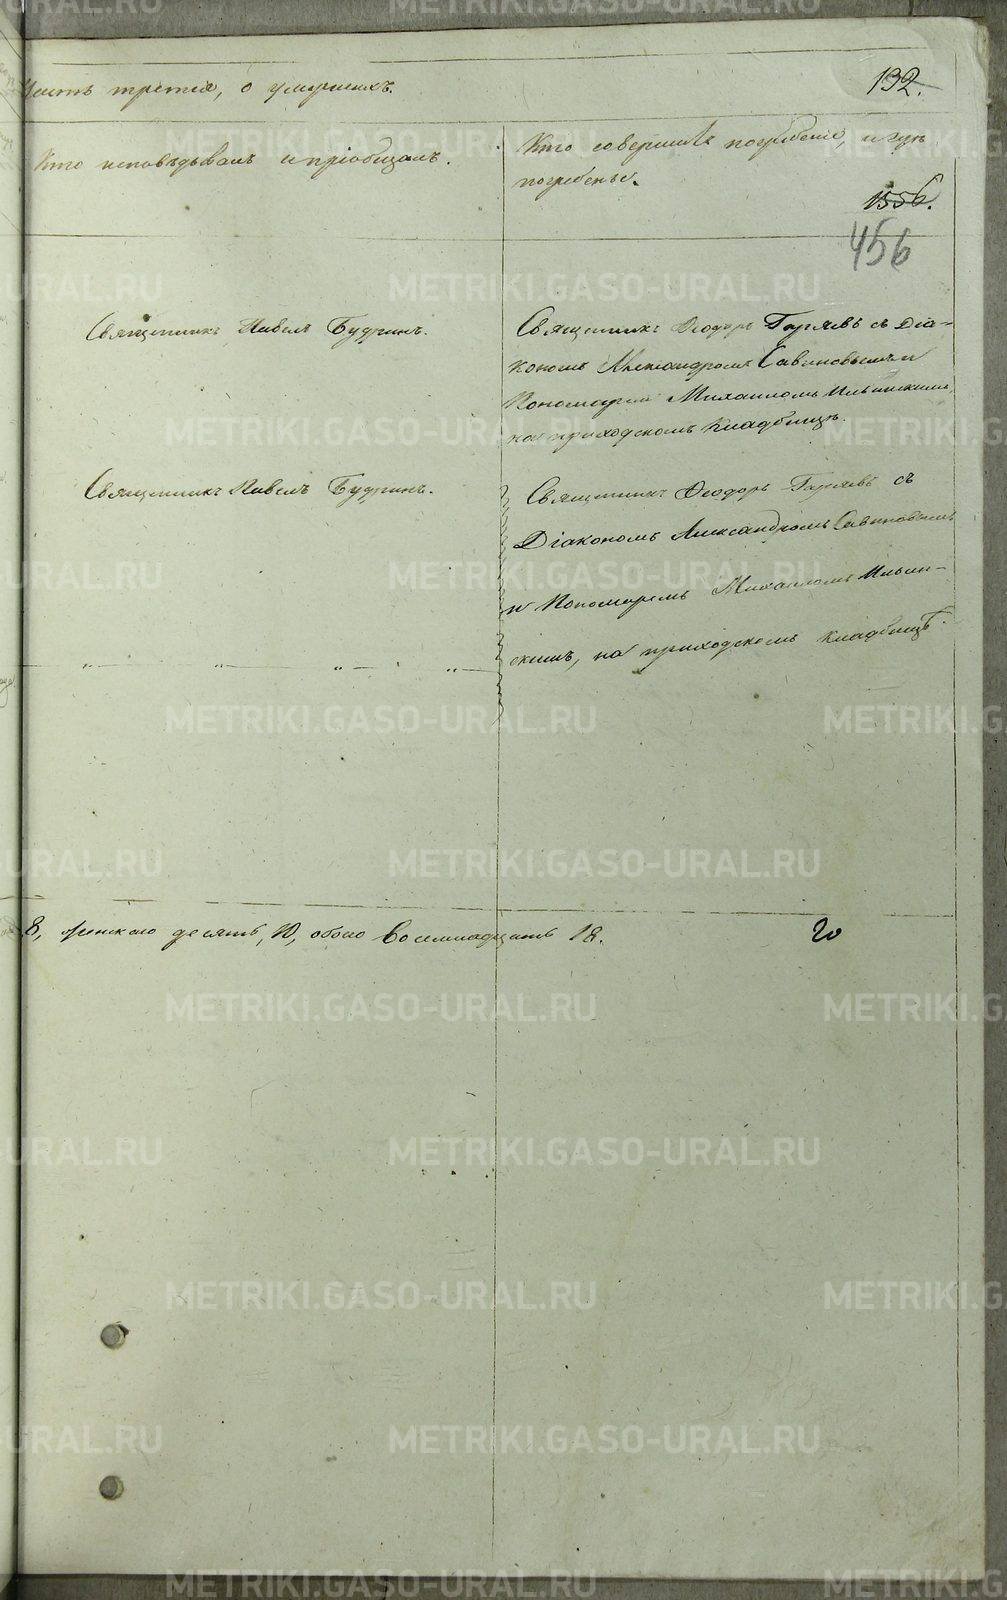 Часть третія, о умершихъ.
132.
Кто исповѣдывалъ и пріобщалъ.
Кто совершалъ погребеніе, и гдѣ
погребены.
1556.
456
Священникъ Павелъ Будринъ.
Священникъ Ѳеодоръ Гаряевъ съ Діа-
кономъ Александромъ Савиновымъ и
Пономаремъ Михаиломъ Ильинскимъ
на приходскомъ кладбищѣ.
Священникъ Павелъ Будринъ.
Священникъ Ѳеодоръ Гаряевъ съ
Діакономъ Александромъ Савиновымъ
и Пономаремъ Михаиломъ Ильин-
скимъ, на приходскомъ кладбищѣ.
8, женскаго десять, 10, обоего восемнадцать 18.
20
METRIKI.GASO-URAL.RU